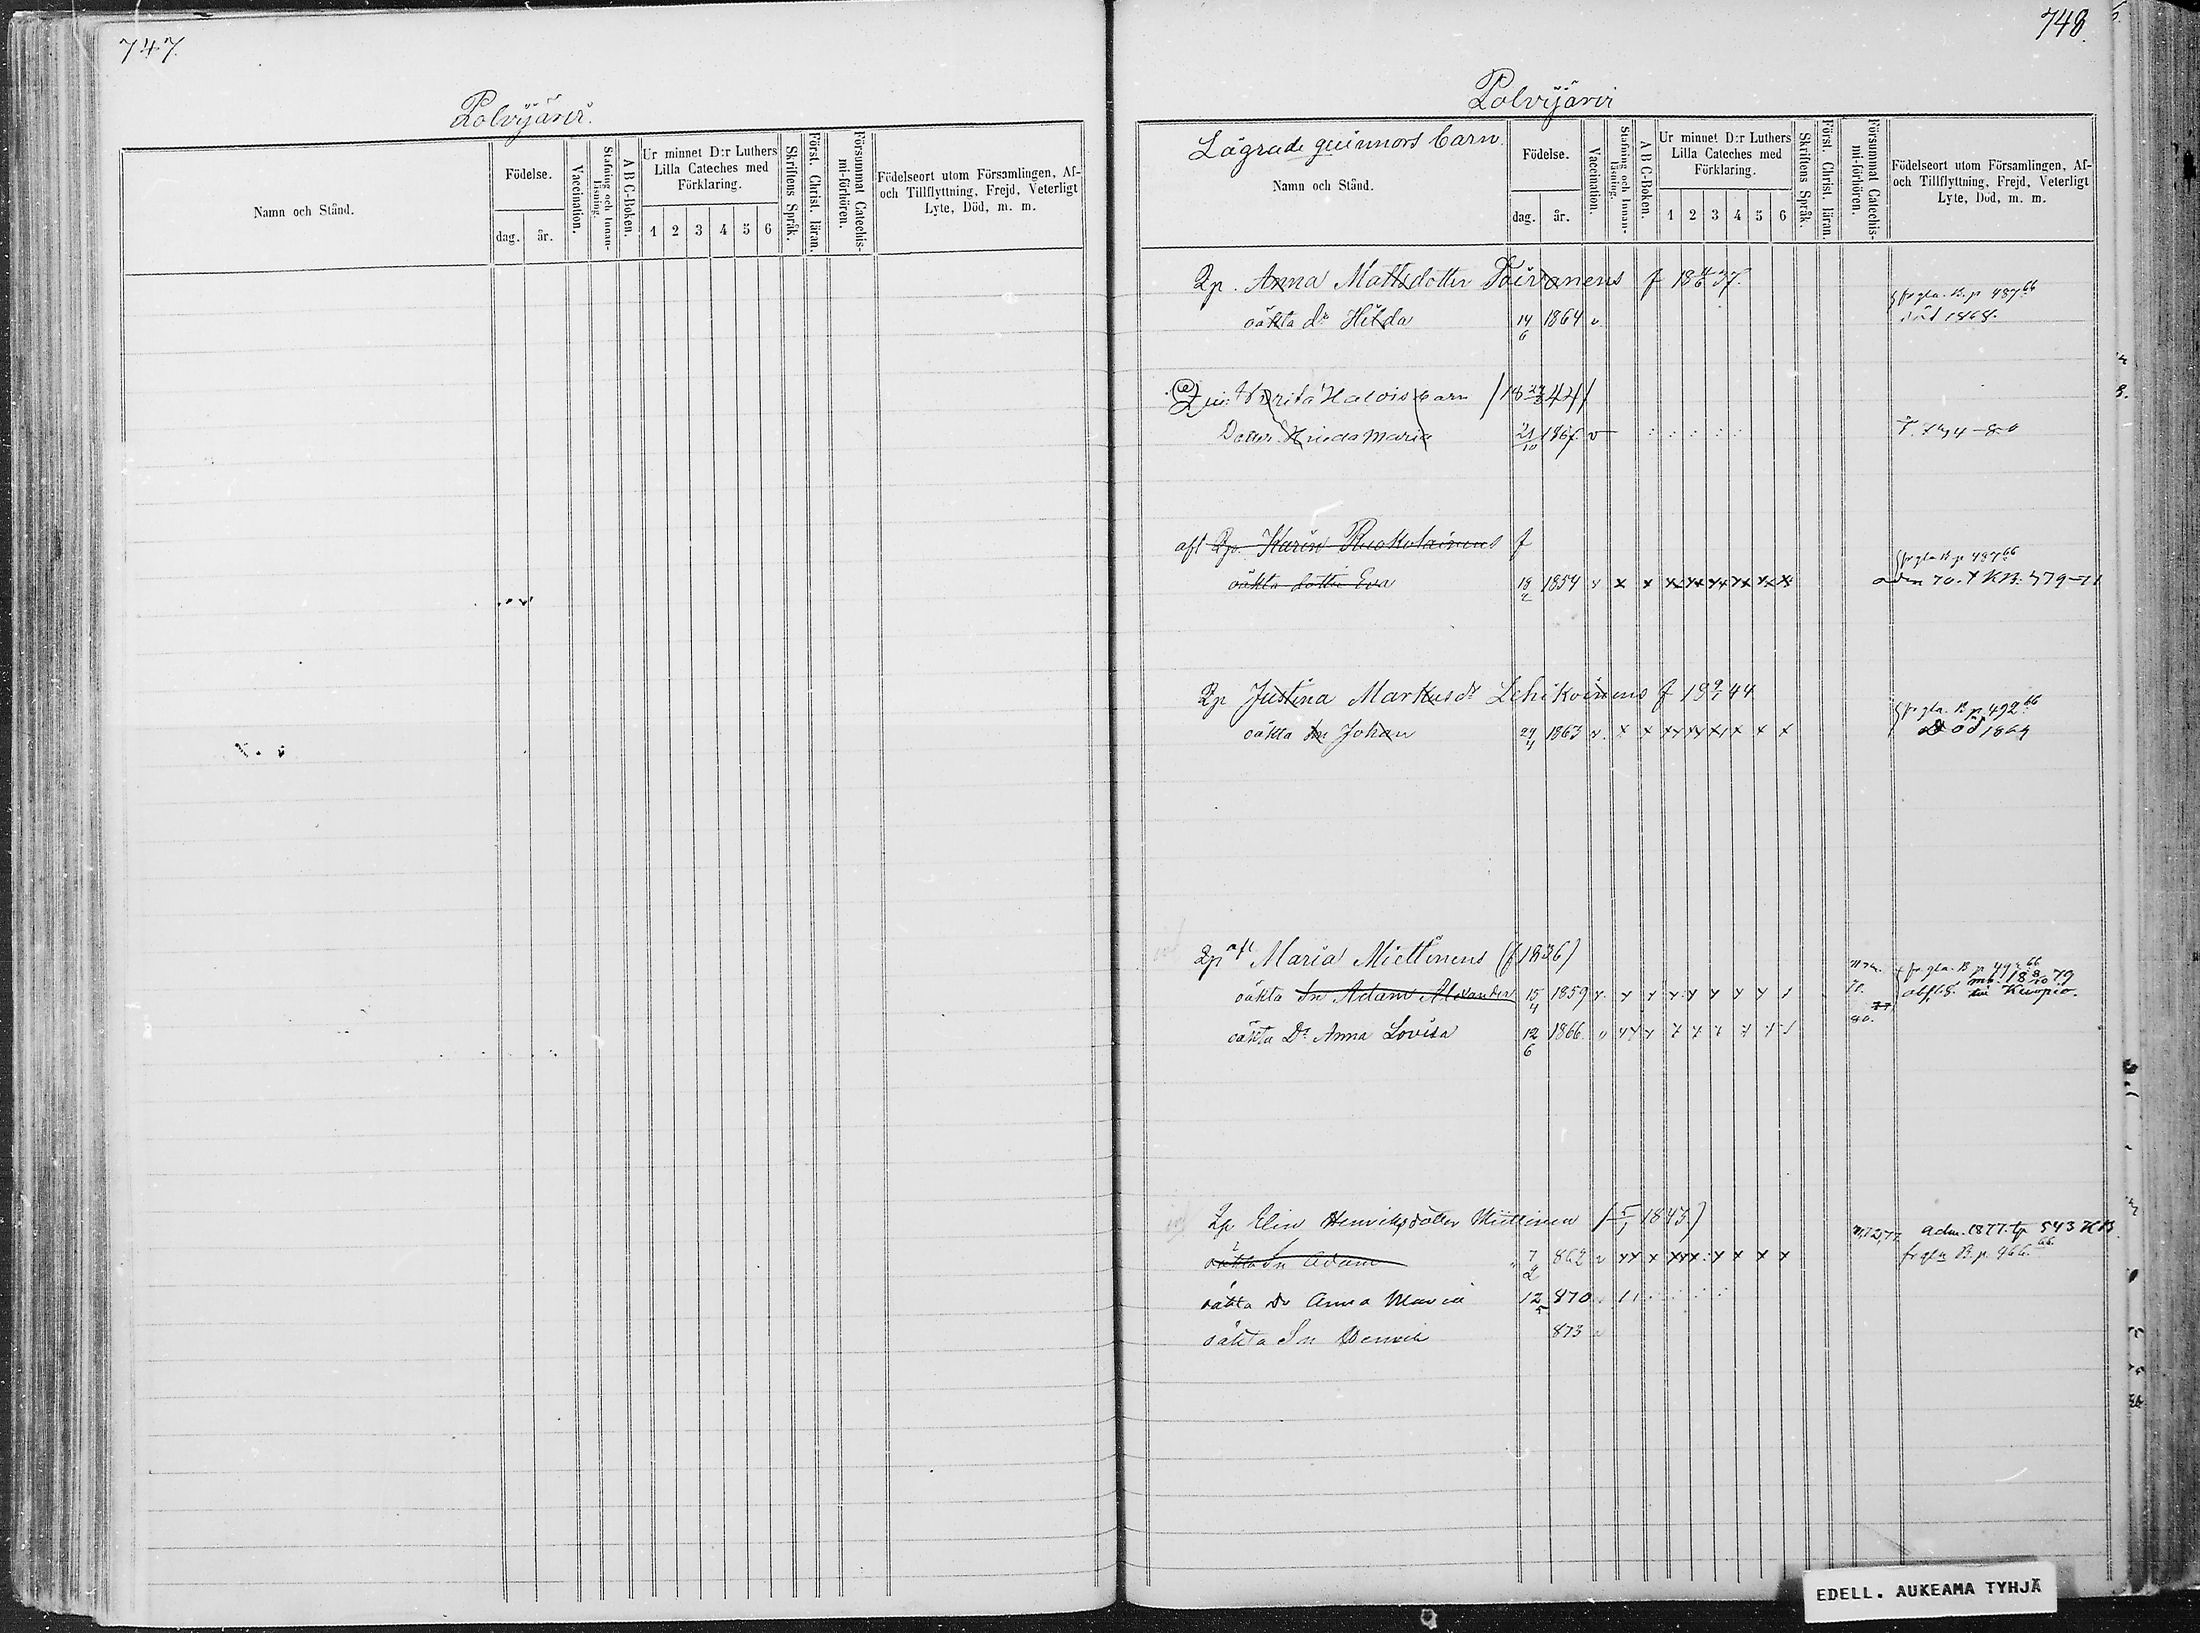 747.
Polvijärvi.
Namn och Stånd.
Födelse.
dag. år.
Vaccination.
Stafning och Innan-läsning.
A B C-Boken.
Ur minnet D:r Luthers Lilla Cateches med Förklaring.
1 2 3 4 5 6
Skriftens Språk.
Först. Christ. läran.
Försummat Catechis-mi-förhören.
Födelseort utom Församlingen, Af- och Tillflyttning, Frejd, Veterligt Lyte, Död, m. m.
748.
Polvijärvi
Lägrade quinnors barn.
Namn och Stånd.
Födelse.
dag. år.
Vaccination.
Stafning och Innan-läsning.
A B C-Boken.
Ur minnet D:r Luthers Lilla Cateches med Förklaring.
1 2 3 4 5 6
Skriftens Språk.
Först. Christ. läran.
Försummat Catechis-mi-förhören.
Födelseort utom Församlingen, Af- och Tillflyttning, Frejd, Veterligt Lyte, Död, m. m.
Qp. Anna Mattsdotter Toivanens f 18 4/6 37.
fr gla. B. p 487 66
oäkta dr Hilda 14/6 1864 v. död 1868.
Barn
Dotter Maria 21/10 186
afl Qp. Karin Ruokolainens f
fr gla B p 487 66
oäkta dotter Eva 18/2 1854 x x x x x x x x x 70. KB. 779-71
Qp Justina Markusdr Lehikoinens f 18 9/1 44
fr gla. B p. 492 66
oäkta Sn Johan 29/4 1863 x x x x x x x x x död 1869
Qp afl Maria Miettinens (f 1836)
fr gla. B p 492 66
oäkta Sn Adam Alexander 15/4 1859 mb. 18 8/10 79 Kuopio.
oäkta Dr Anna Lovisa 12/6 1866
80.
Qp Elin Henriksdotter Miettinen ( 5/1 1843)
adm. 1877. tp 543 KB
oäkta Sn Adam 7/2 862 v x x x x x x x x x fr gla B. p. 466. 66
oäkta Dr Anna Maria 12/5 870
oäkta Sn Henrik 873 v
EDELL. AUKEAMA TYHJÄ